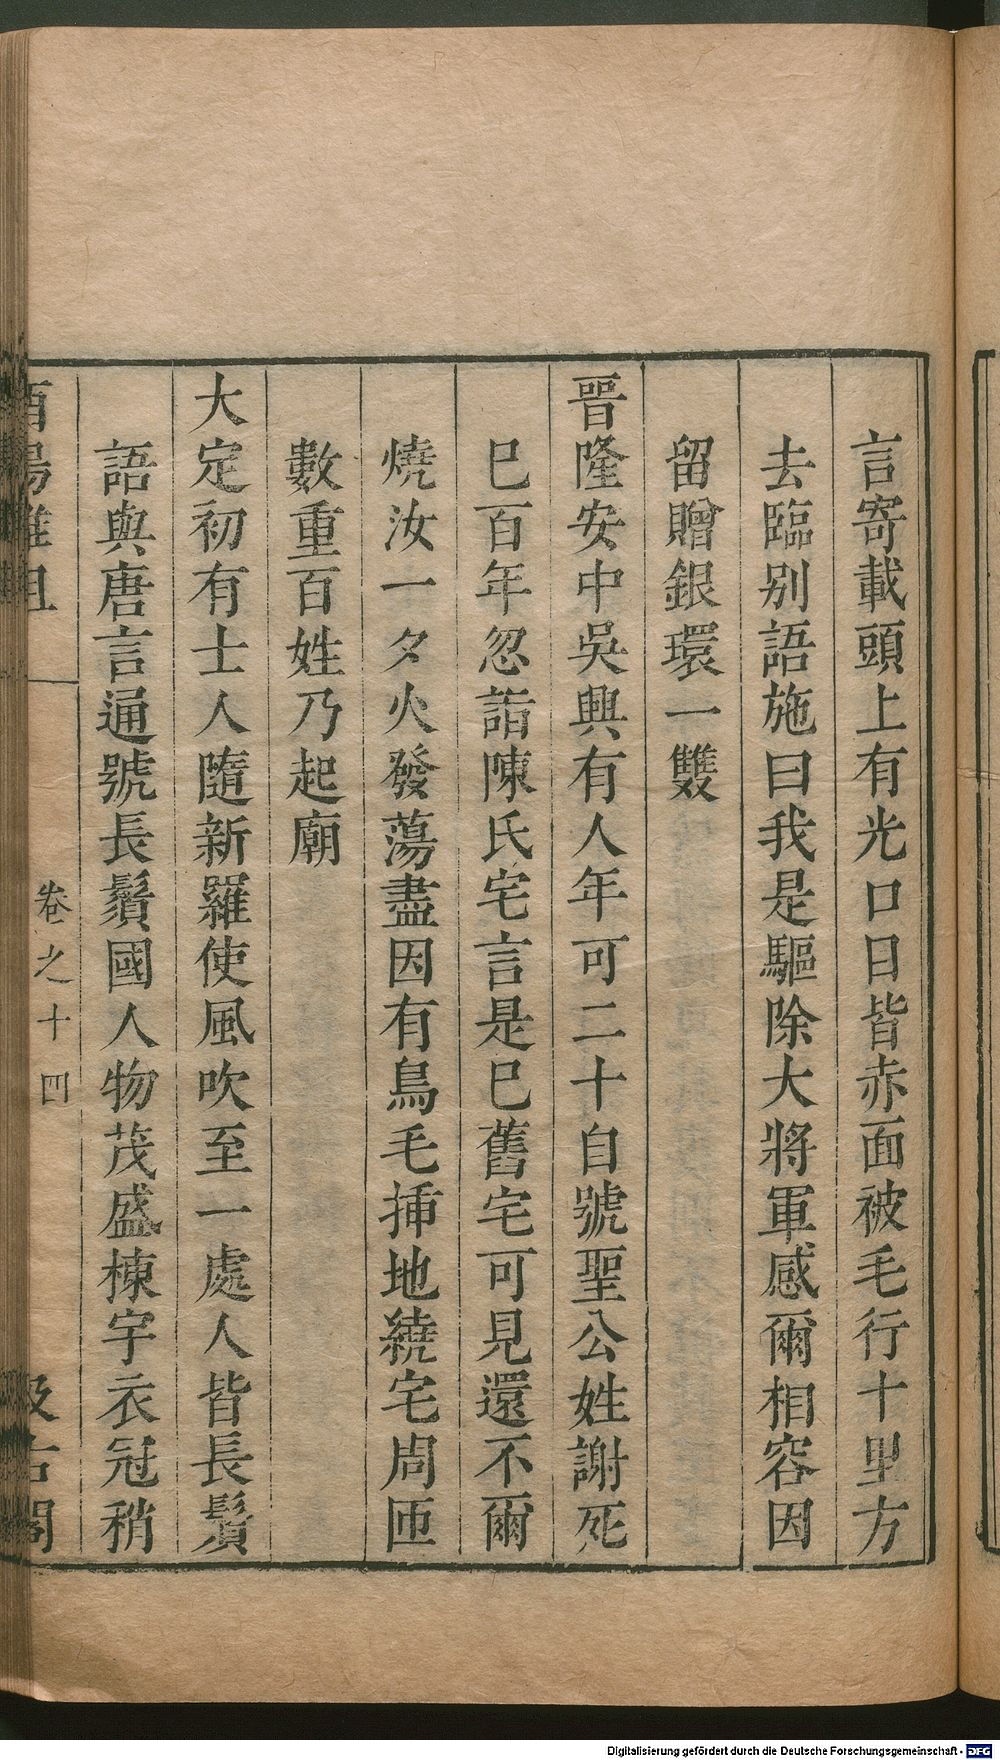 言寄載頭上有光口目皆赤面被毛行十里方
去臨別語施曰我是驅除大將軍感爾相容因
留贈銀環一雙
晉隆安中吳興有人年可二十自號聖公姓謝死
巳百年忽詣陳氏宅言是巳舊宅可見還不爾
燒汝一夕火發蕩盡因有鳥毛挿地繞宅周匝
數重百姓乃起廟
大定初有士人隨新羅使風吹至一處人皆長鬚
語與唐言通號長鬚國人物茂盛棟宇衣冠稍
酉陽雜俎
卷之十四
汲古閣
Digitalisierung gefördert durch die Deutsche Forschungsgemeinschaft - DFG